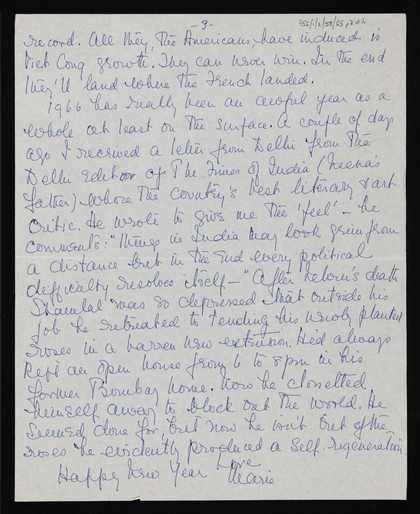 - 3 -
record. All they, the Americans, have induced is
Viet Cong growth. They can never win. In the end
they'll land where the French landed.
1966 has really been an awful year as a
whole at least on the surface. A couple of days
ago I received a letter from Delhi from the
Delhi Editor of The Times of India (Meena's
father) who's the country's best literary & art
critic. He wrote to give me the 'feel' - he
comments: "Things in India may look grim from
a distance but in the end every political
difficulty resolves itself—" After death
Shamlal was so depressed that outside his
job he retreated to tending his newly planted
roses in a barren new extention. He'd always
kept an open house from 6 to 8 pm in his
former Bombay home. Now he closetted
himself away to block out the world. He
seemed done for. But now he's out. Out of the
roses he evidently produced a self-regeneration
Happy New Year Love
Marie